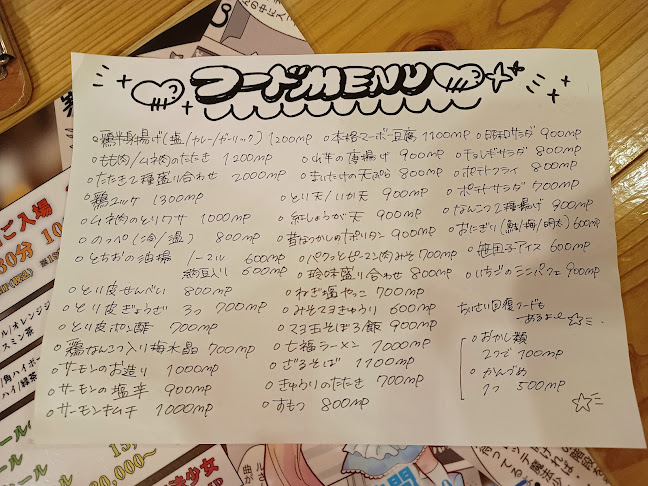 フードMENU
鶏半身揚げ(塩/カレー/ガーリック) 1200mp
もも肉/ムネ肉のたたき 1200mp
たたき2種盛り合わせ 2000mp
鶏ユッケ 1300mp
ムネ肉のとりワサ 1000mp
のっぺ(冷/温) 800mp
とちおの油揚 ノーマル 600mp
納豆入り 600mp
とり皮せんべい 800mp
とり皮ぎょうざ 3つ 700mp
とり皮ポン酢 700mp
鶏なんこつ入り梅水晶 700mp
サーモンのお造り 1000mp
サーモンの塩辛 900mp
サーモンキムチ 1000mp
本格マーボー豆腐 1100mp
山牛の唐揚げ 900mp
まいたけの天ぷら 800mp
とり天/いか天 900mp
紅しょうが天 900mp
昔なつかしのナポリタン 900mp
パクッとピーマン肉みそ 700mp
珍味盛り合わせ 800mp
ねぎ塩やっこ 700mp
みそマヨきゅうり 600mp
マヨ玉そぼろ飯 900mp
七福ラーメン 1000mp
ざるそば 1100mp
きゅうりのたたき 700mp
すもつ 800mp
昭和サラダ 900mp
チョレギサラダ 800mp
ポテトフライ 800mp
ポテトサラダ 700mp
なんこつ2種揚げ 900mp
おにぎり(鮭/梅/明太) 600mp
笹団子アイス 600mp
いちごのミニパフェ 900mp
ちいさい回復フードも
あるよ〜
おかし類
2つで 100mp
かんづめ
1つ 500mp
ご入場
30分